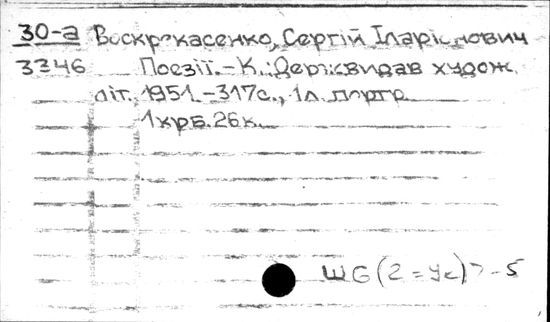 30-а Воскрекасенко, Сергій Іларіонович
3346 Поезії. - К.: Держвидав худож.
літ., 1951. - 317с., 1 л. портр.
1крб. 26к.
Ш6(2=Ук)7-5